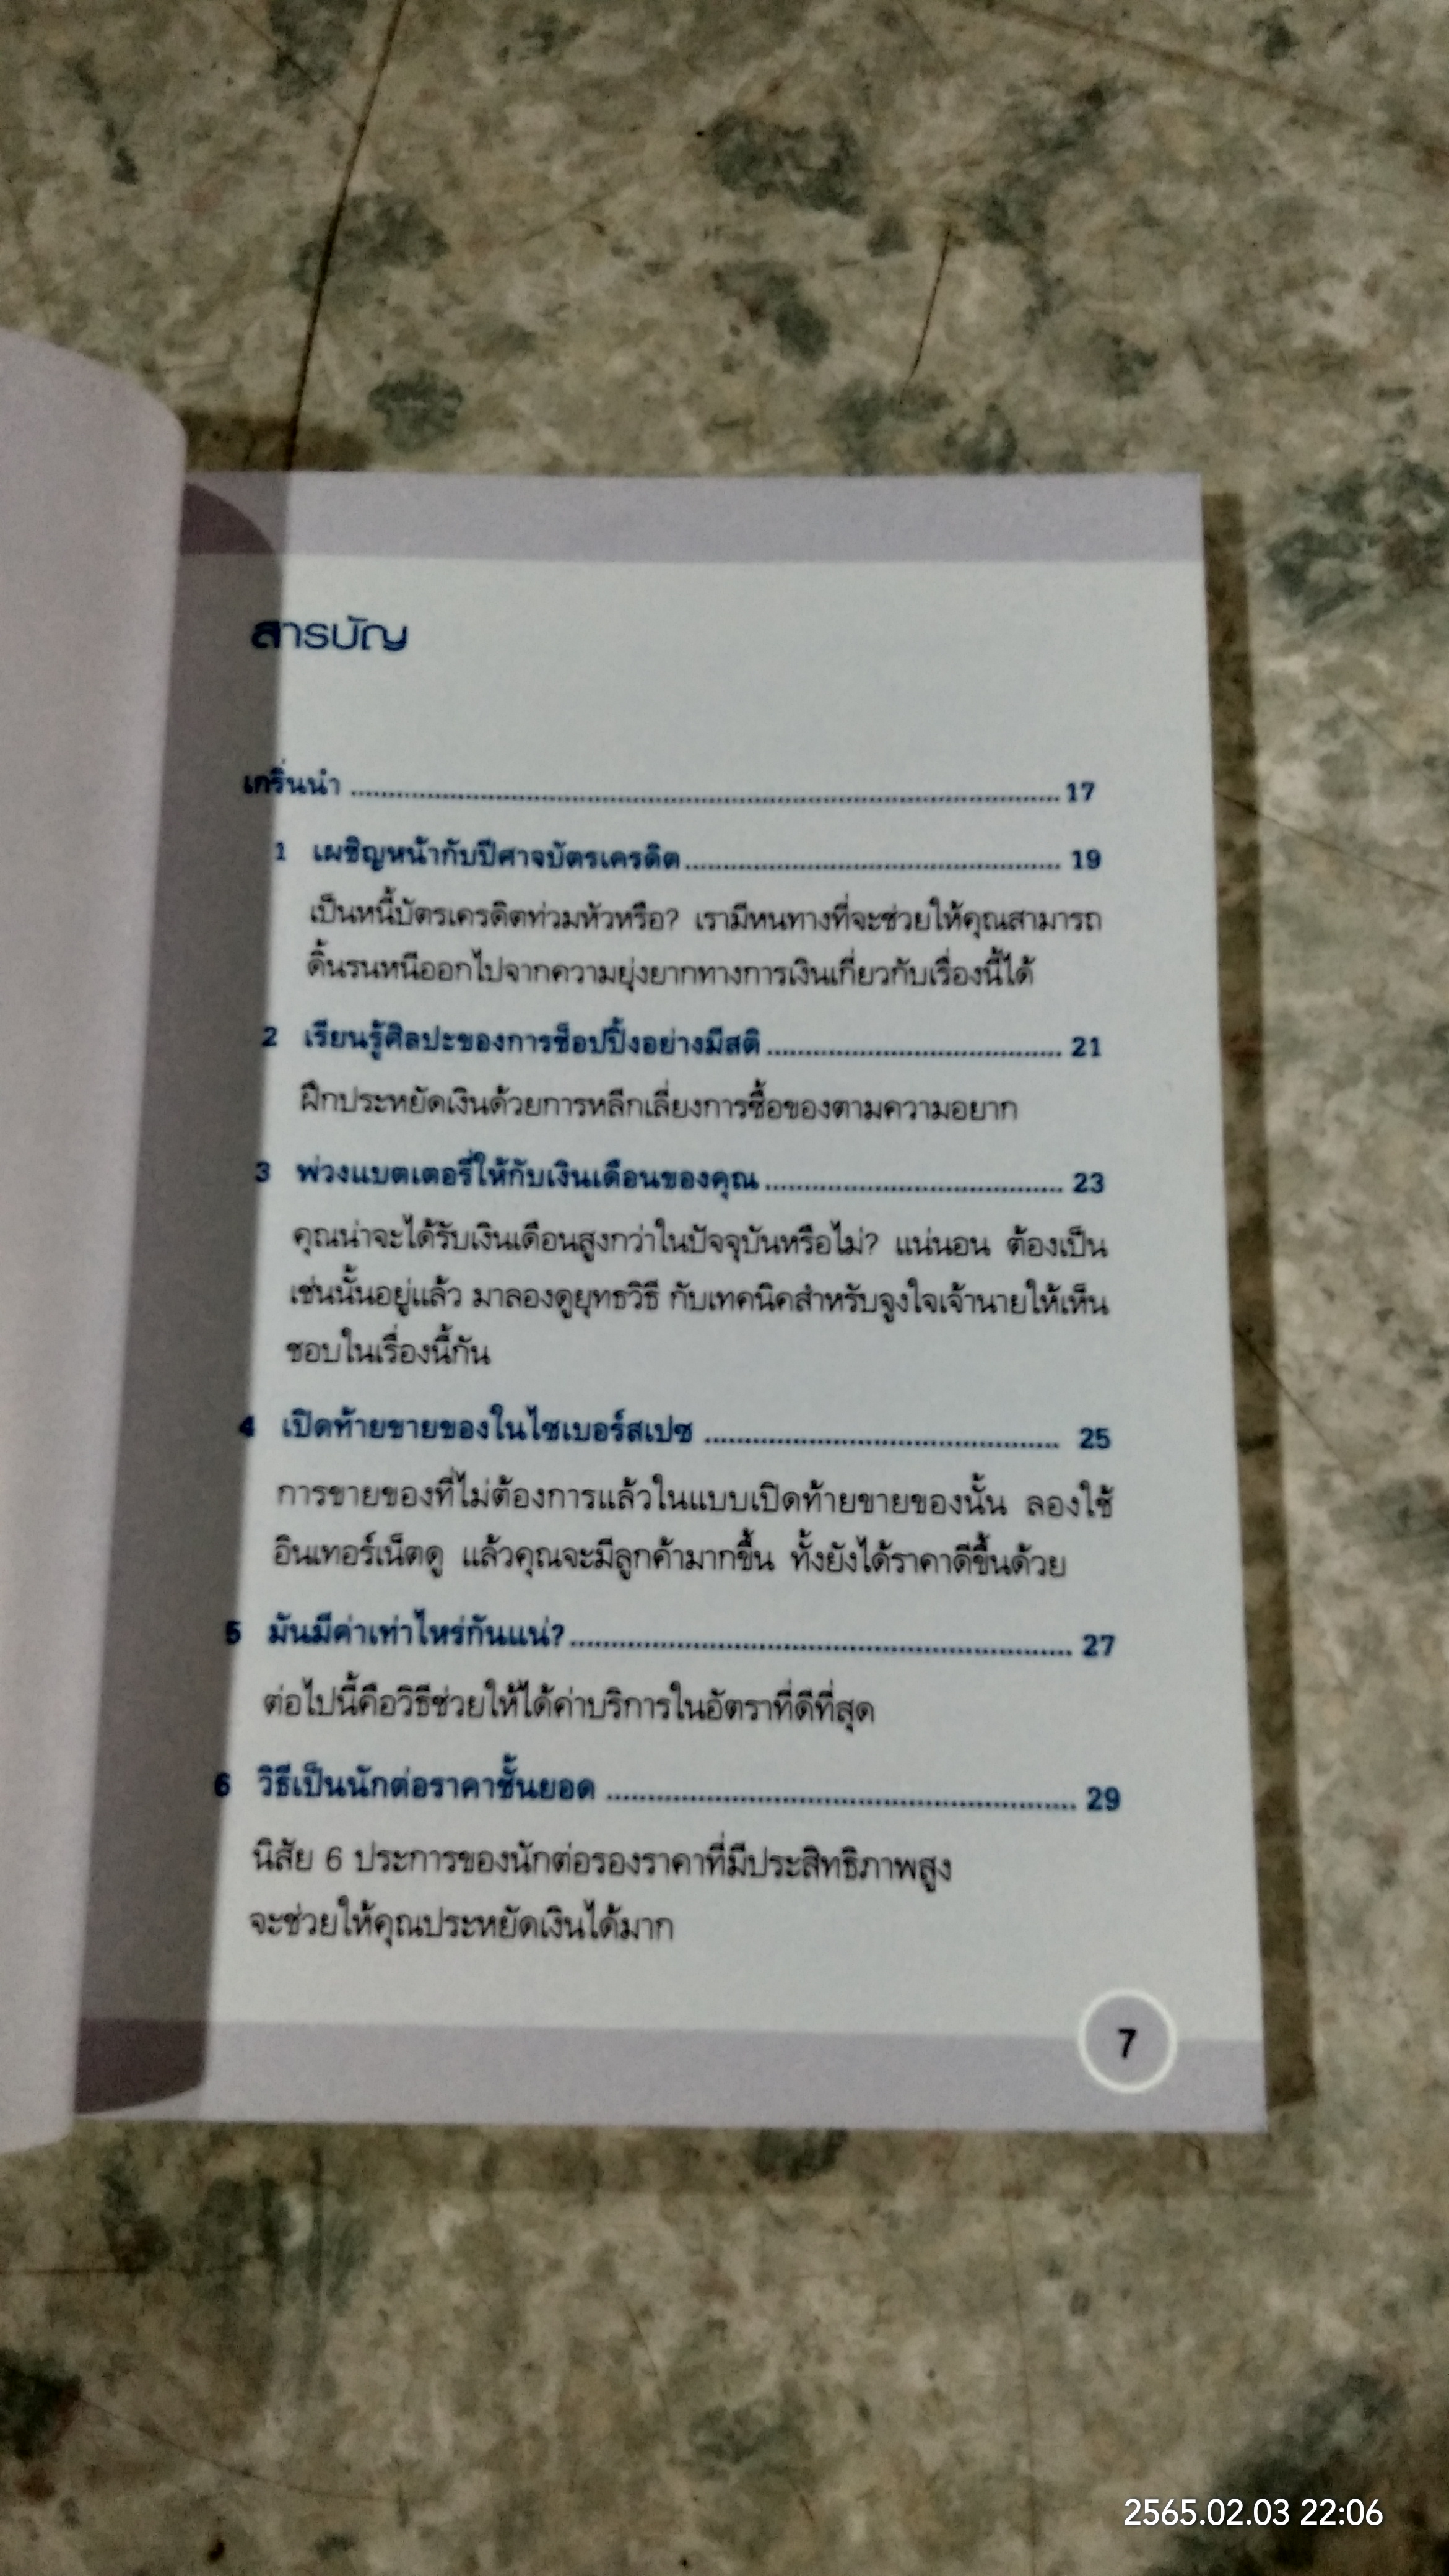 สารบัญ
เกริ่นนำ ........................................................ 17
1 เผชิญหน้ากับปีศาจบัตรเครดิต........................................ 19
เป็นหนี้บัตรเครดิตท่วมหัวหรือ? เรามีหนทางที่จะช่วยให้คุณสามารถ
ดิ้นรนหนีออกไปจากความยุ่งยากทางการเงินเกี่ยวกับเรื่องนี้ได้
2 เรียนรู้ศิลปะของการช็อปปิ้งอย่างมีสติ........................................ 21
ฝึกประหยัดเงินด้วยการหลีกเลี่ยงการซื้อของตามความอยาก
3 พ่วงแบตเตอรี่ให้กับเงินเดือนของคุณ........................................ 23
คุณน่าจะได้รับเงินเดือนสูงกว่าในปัจจุบันหรือไม่? แน่นอน ต้องเป็น
เช่นนั้นอยู่แล้ว มาลองดูยุทธวิธี กับเทคนิคสำหรับจูงใจเจ้านายให้เห็น
ชอบในเรื่องนี้กัน
4 เปิดท้ายขายของในไซเบอร์สเปซ ........................................ 25
การขายของที่ไม่ต้องการแล้วในแบบเปิดท้ายขายของนั้น ลองใช้
อินเทอร์เน็ตดู แล้วคุณจะมีลูกค้ามากขึ้น ทั้งยังได้ราคาดีขึ้นด้วย
5 มันมีค่าเท่าไหร่กันแน่?........................................ 27
ต่อไปนี้คือวิธีช่วยให้ได้ค่าบริการในอัตราที่ดีที่สุด
6 วิธีเป็นนักต่อราคาชั้นยอด ........................................ 29
นิสัย 6 ประการของนักต่อรองราคาที่มีประสิทธิภาพสูง
จะช่วยให้คุณประหยัดเงินได้มาก
7
2565.02.03 22:06